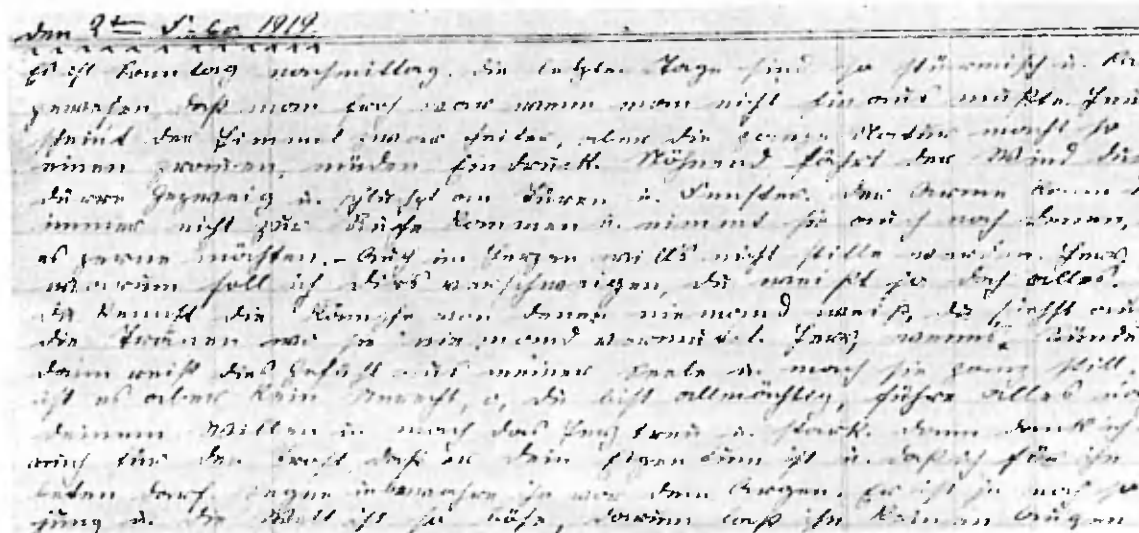 den 2ten Febr. 1919.
Es ist Sonntag nachmittag. Die letzten Tage sind so stürmisch u.
gewesen daß man froh war wenn man nicht hinaus mußte.
scheint der Himmel zwar heiter, aber die ganze Natur macht so
einen grauen, müden Eindruck. Stöhnend fährt der Wind
dürre Gezweig u. schluchzt an Türen u. Fenster. Der Arme kann
immer nicht zur Ruhe kommen u. nimmt sie auch noch denen,
es gerne möchten. - Auch im Herzen will's nicht stille werden. Herr
warum soll ich dirs verschweigen, du weißt ja doch alles.
du kennst die Kämpfe von denen niemand weiß, du siehst
die Tränen wo sie niemand vermutet. Herr, wenns Sünde
dann reiß dies Gefühl aus meiner Seele u. mach sie ganz still.
ist es aber kein Unrecht, o, du bist allmächtig, führe alles
deinem Willen u. mach das Herz treu u. stark. dann dank ich
auch für den Trost, daß er dein Eigentum ist u. daß ich für ihn
beten darf. Segne u. bewahre ihn vor dem Argen. Er ist ja noch so
jung u. die Welt ist so böse, darum laß ihn keinen Augen